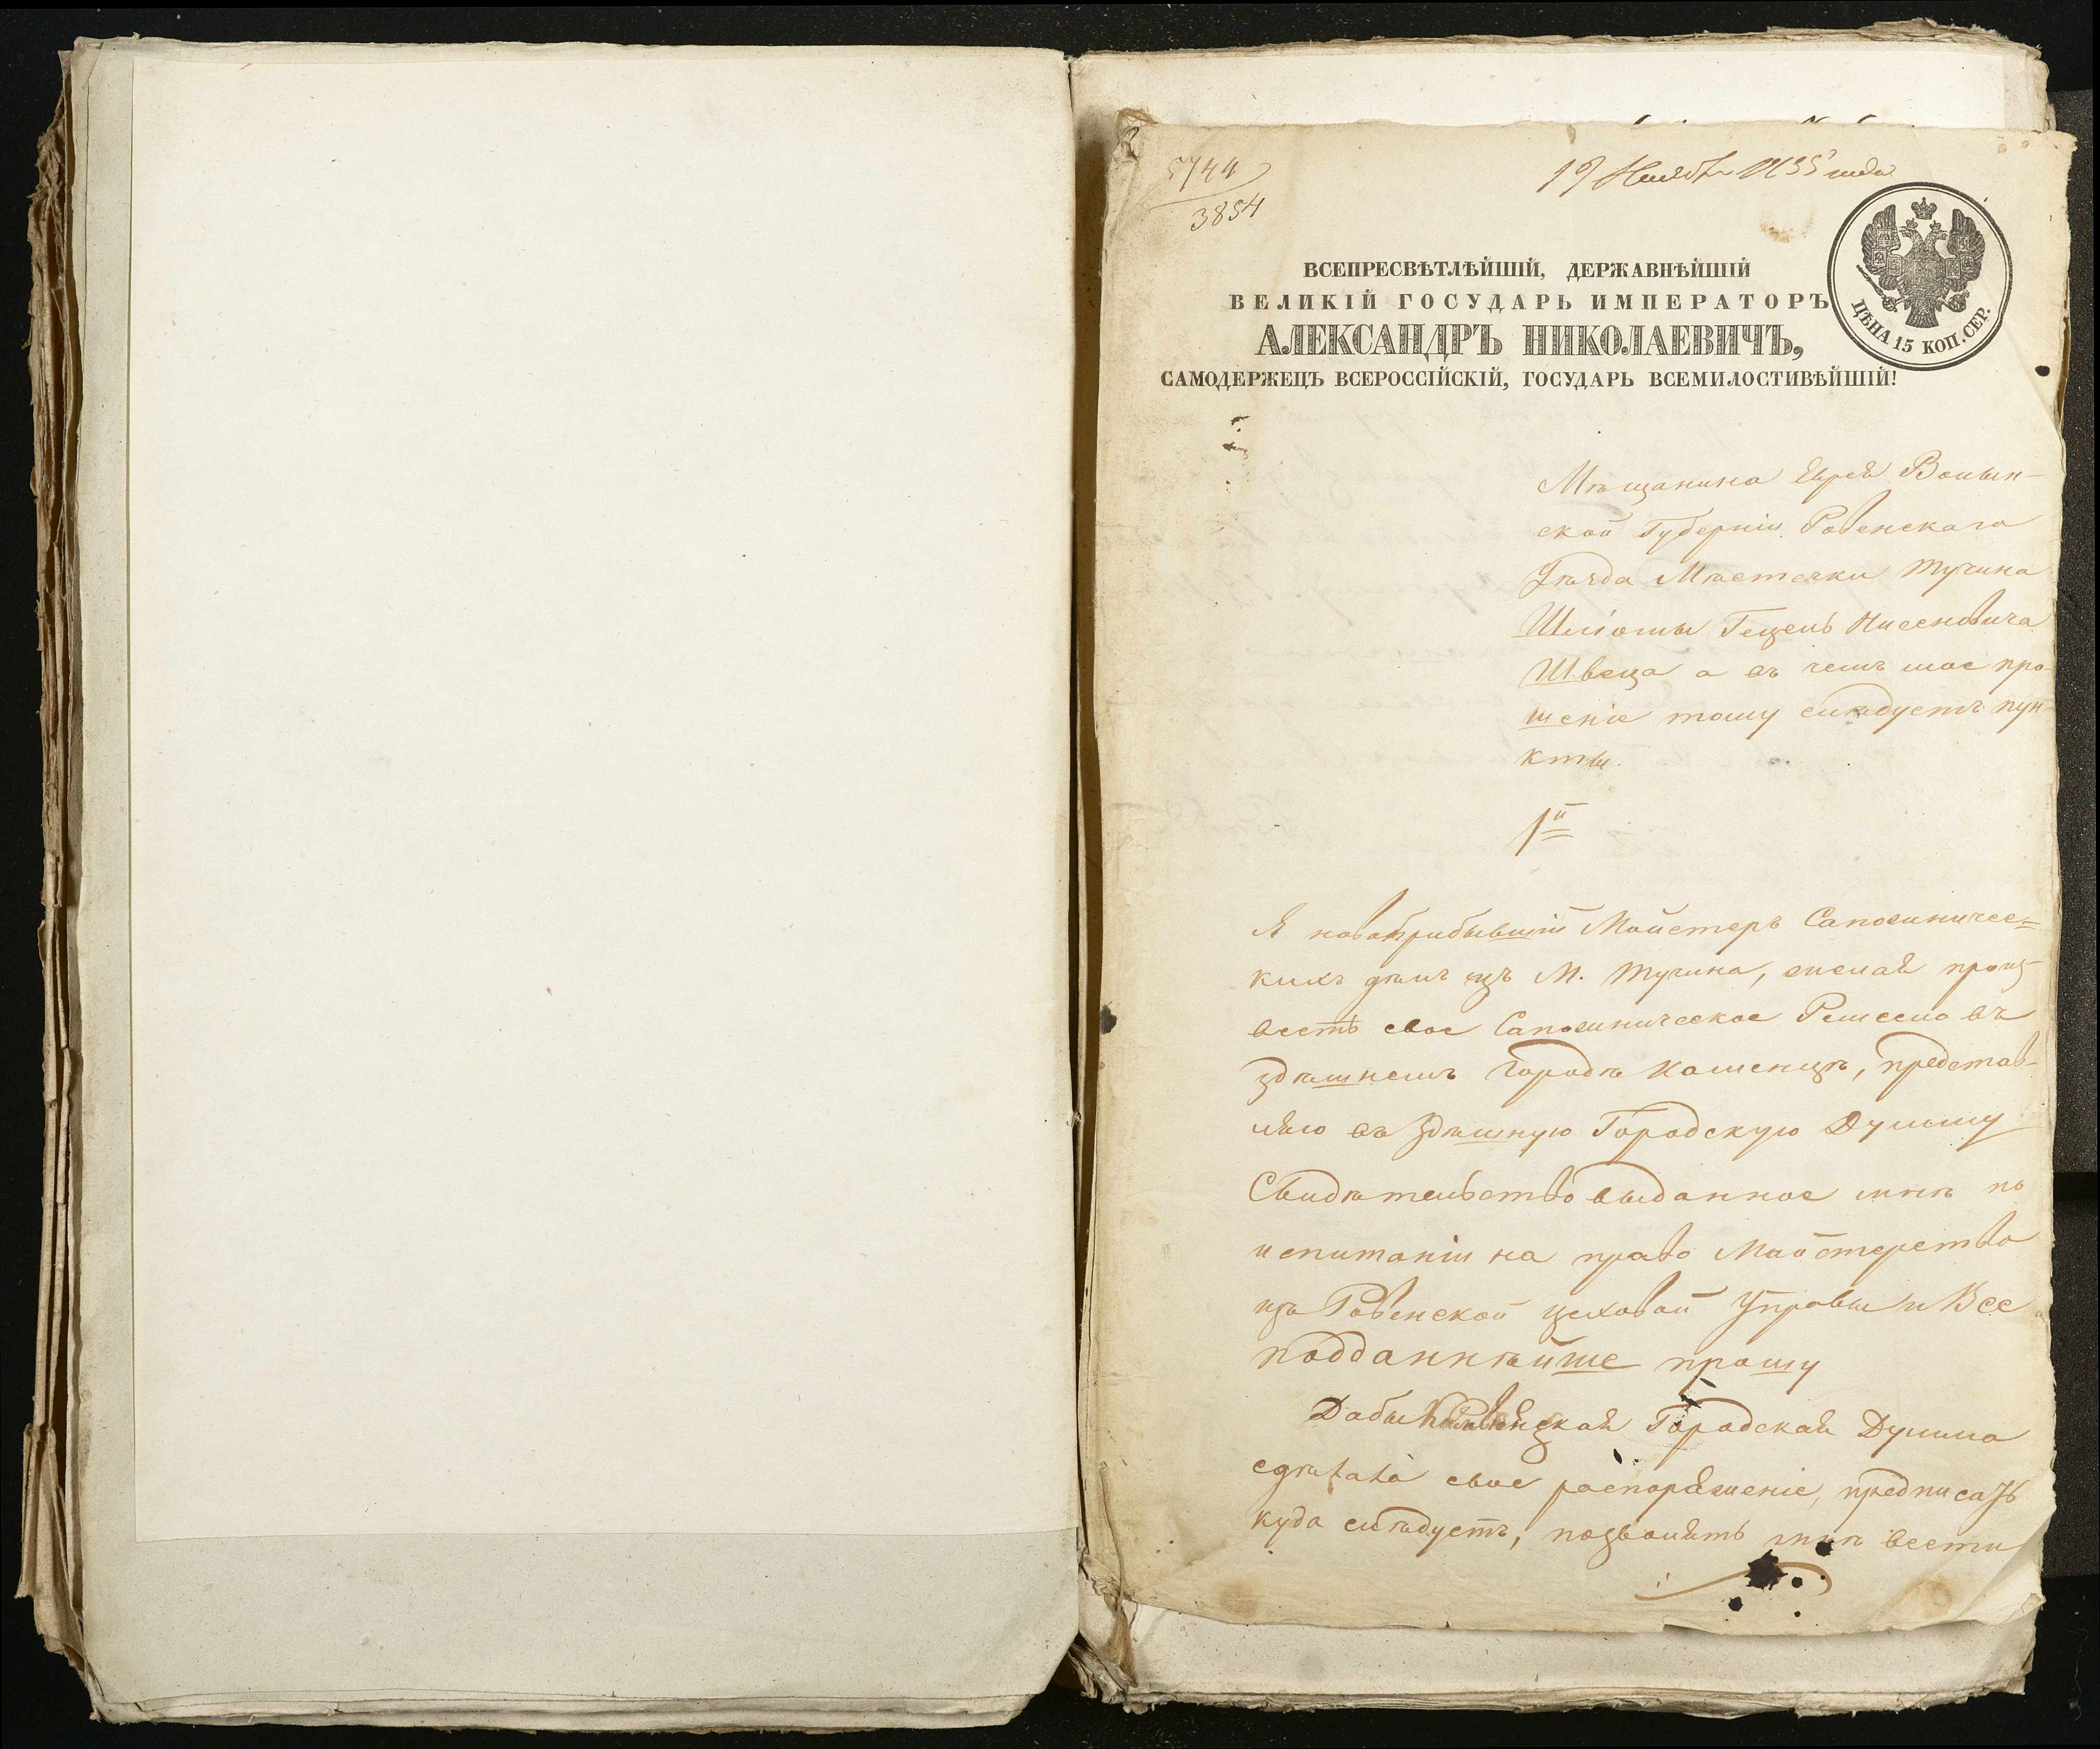 5744
3854
19 Ноября 1855 года
ВСЕПРЕСВѢТЛѢЙШІЙ, ДЕРЖАВНѢЙШІЙ
ВЕЛИКІЙ ГОСУДАРЬ ИМПЕРАТОРЪ
АЛЕКСАНДРЪ НИКОЛАЕВИЧЪ,
САМОДЕРЖЕЦЪ ВСЕРОССІЙСКІЙ, ГОСУДАРЬ ВСЕМИЛОСТИВѢЙШІЙ!
ЦѢНА 15 КОП. СЕР.
Мѣщанина Еврея Волын-
ской Губерніи Ровенскаго
Уѣзда Мѣстечка Тучина
Шліомы Гецель Нисеновича
Швеца а въ чемъ мое про-
шеніе тому слѣдуетъ пун-
кты.
1й
Я новоприбывшій Мойстеръ Сапожничес-
кихъ дѣлъ изъ М. Тучина, желая произ-
весть свое Сапожническое Ремесло въ
здѣшнемъ Городѣ Каменцѣ, представ-
ляю въ здѣшную Городскую Думму
Свидѣтельство выданное мнѣ по
испитаніи на право Мойстерство
изъ Ровенской цеховой Управы и Все
подданнѣйше прошу
Дабы Городская Думма
сдѣлала свое распоряженіе, предписать
куда слѣдуетъ, позволить мнѣ вести